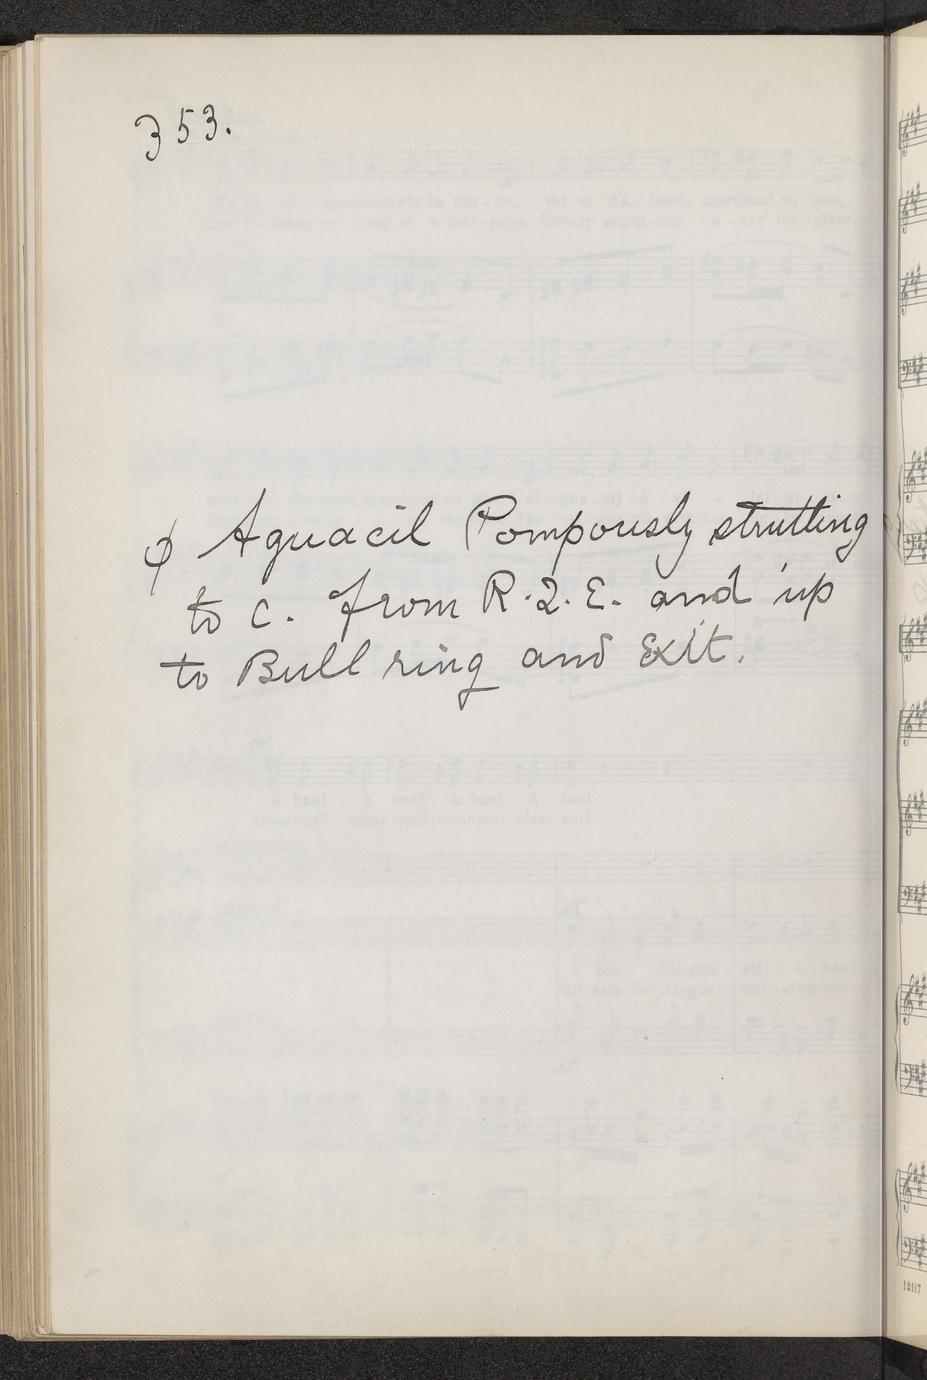 353.
ϕ Aguacil Pompously strutting
to C. from R.2.E. and up
to Bull ring and Exit.
12117